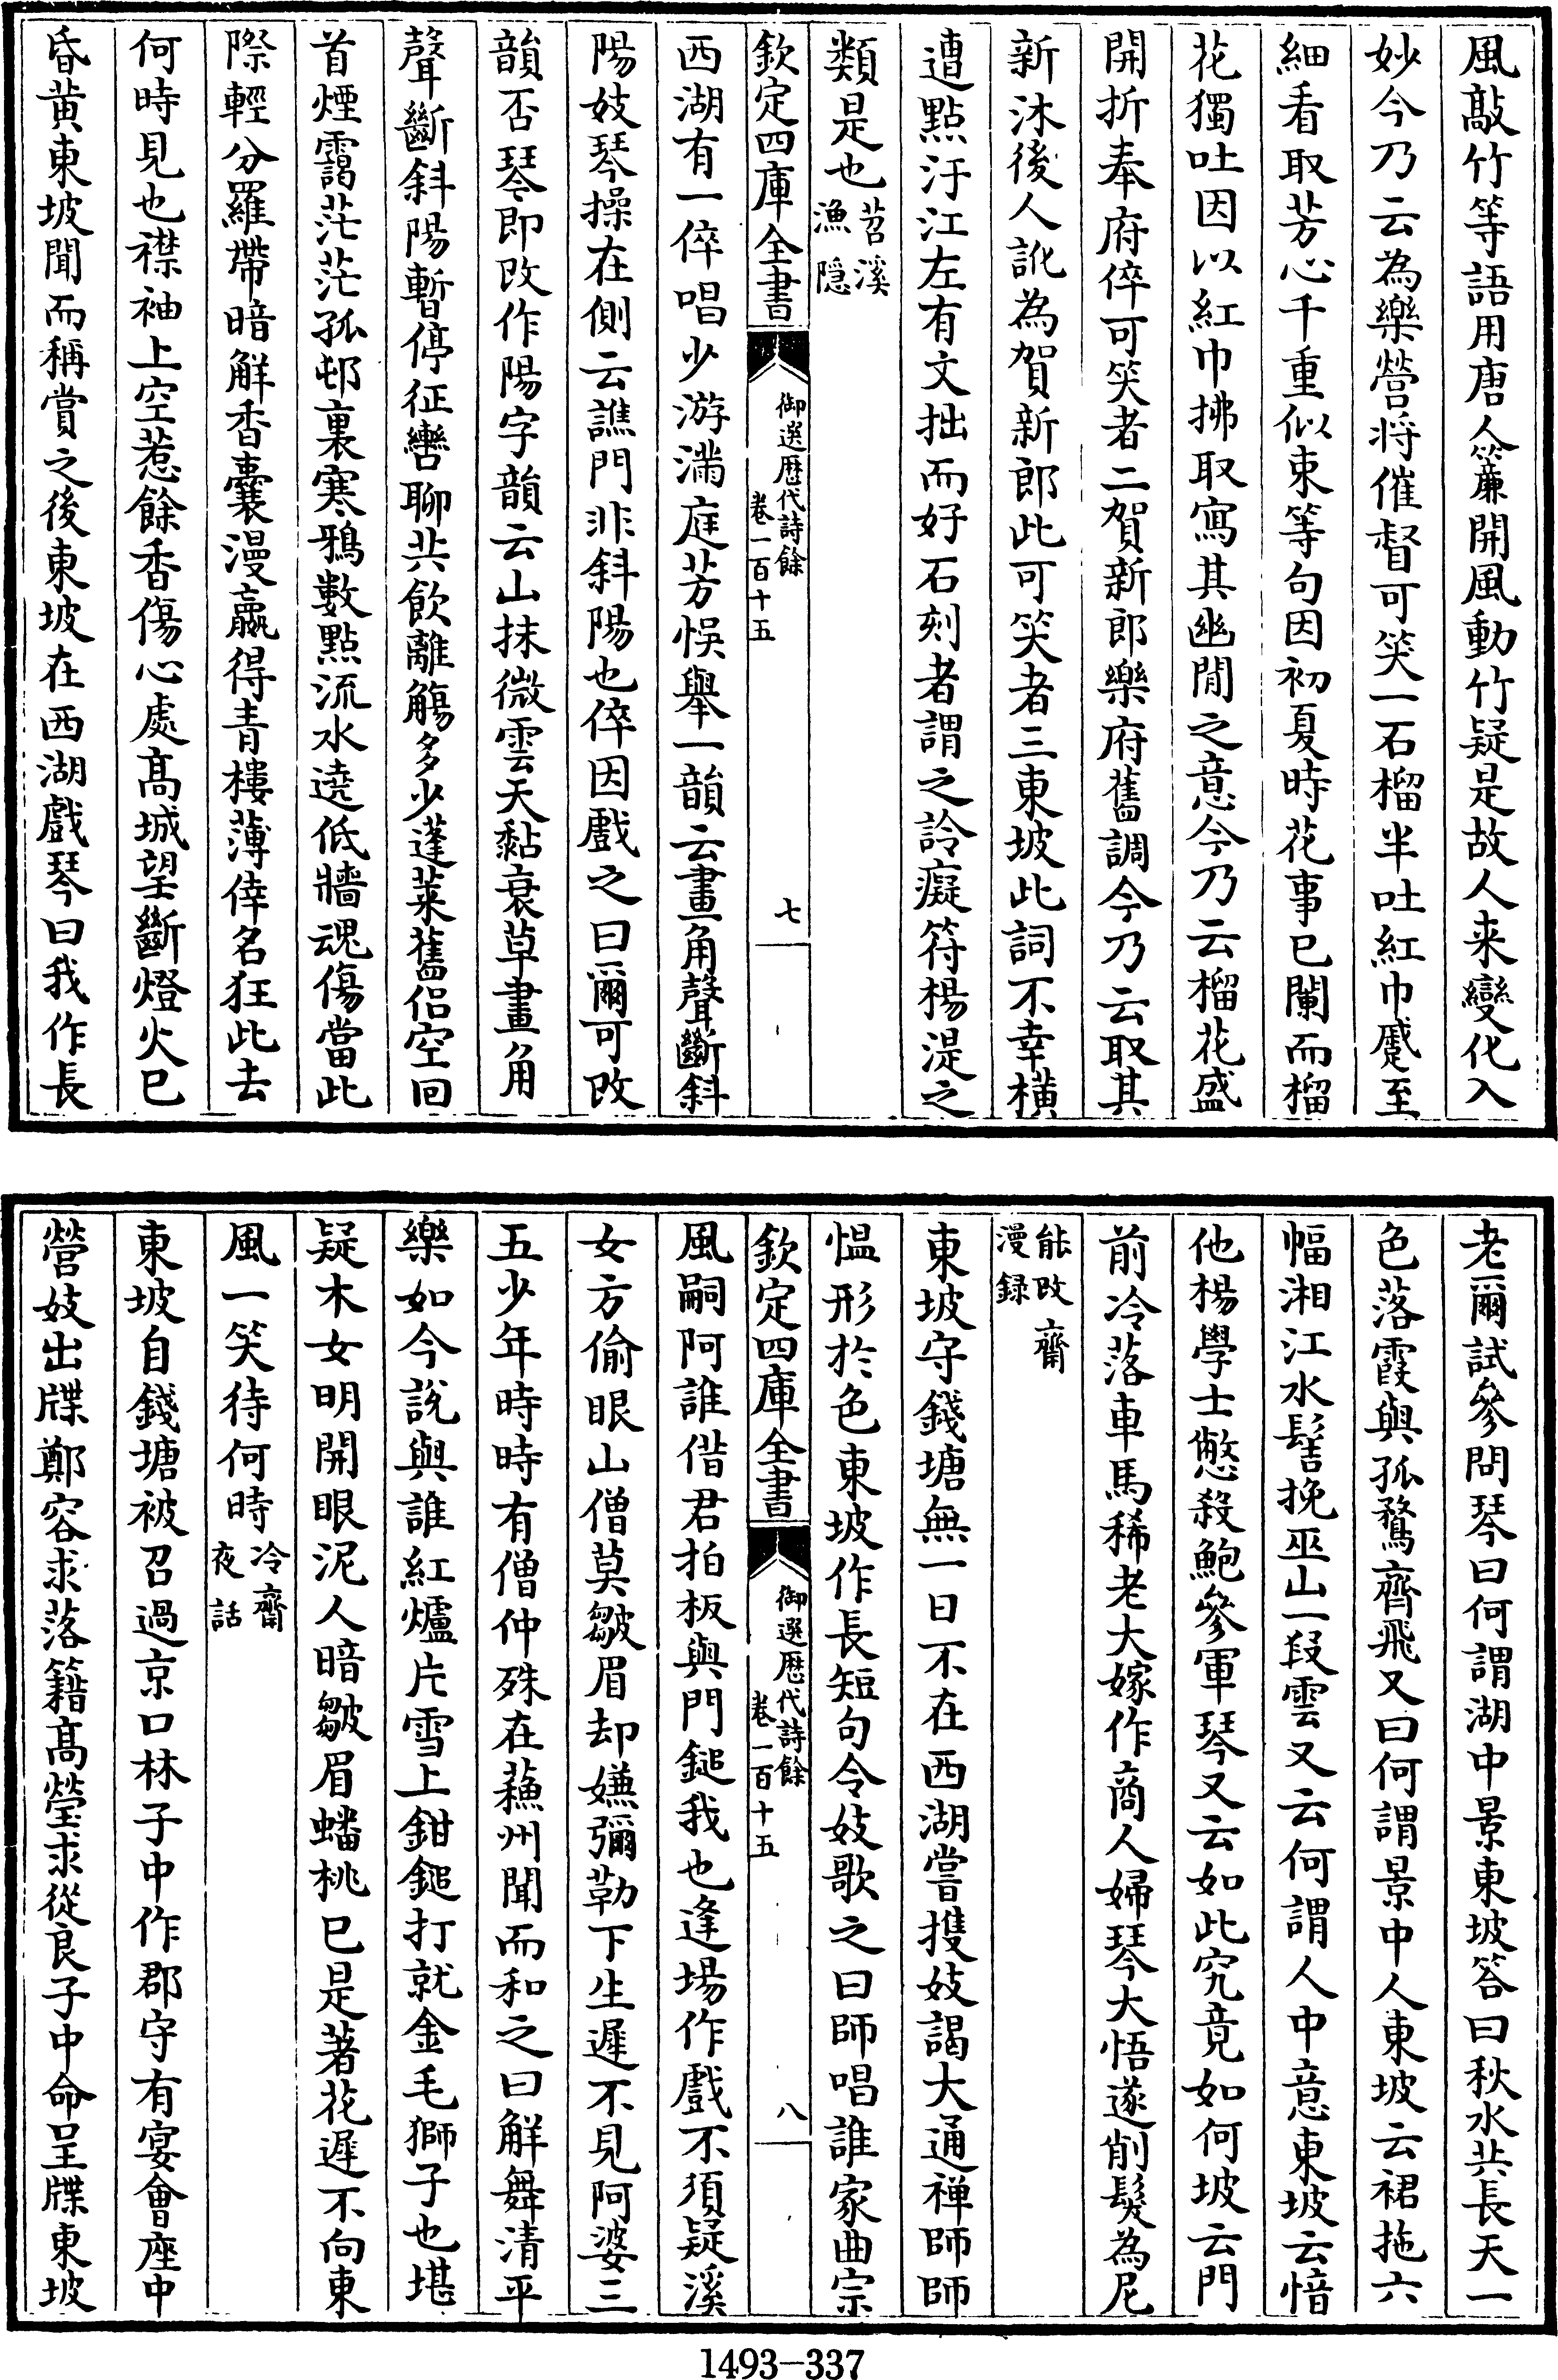 風敲竹等語用唐人簾開風動竹疑是故人来變化入
妙今乃云為樂營将催督可笑一石榴半吐紅巾蹙至
細看取芳心千重似束等句因初夏時花事已闌而榴
花獨吐因以紅巾拂取寫其幽閒之意今乃云榴花盛
開折奉府倅可笑者二賀新郎樂府舊調今乃云取其
新沐後人訛為賀新郎此可笑者三東坡此詞不幸橫
遭點汙江左有文拙而好石刻者謂之詅癡符楊湜之
類是也苕溪
漁隠
欽定四庫全書
御選歴代詩餘
卷一百十五
七
西湖有一倅唱少游滿庭芳悞舉一韻云畫角聲斷斜
陽妓琴操在側云譙門非斜陽也倅因戲之曰爾可改
韻否琴即改作陽字韻云山抹微雲天黏衰草畫角
聲斷斜陽暫停征轡聊共飲離觴多少蓬莱舊侣空回
首煙靄茫茫孤邨裏寒鴉數點流水遶低牆魂傷當此
際輕分羅帶暗解香囊漫贏得青樓薄倖名狂此去
何時見也襟袖上空惹餘香傷心處髙城望斷燈火已
昏黄東坡聞而稱賞之後東坡在西湖戲琴曰我作長
老爾試參問琴曰何謂湖中景東坡答曰秋水共長天一
色落霞與孤鶩齊飛又曰何謂景中人東坡云裙拖六
幅湘江水髻挽巫山一段雲又云何謂人中意東坡云愔
他楊學士憋殺鮑參軍琴又云如此究竟如何坡云門
前冷落車馬稀老大嫁作商人婦琴大悟遂削髪為尼
能改齋
漫録
東坡守錢塘無一日不在西湖嘗攜妓謁大通禅師師
愠形於色東坡作長短句令妓歌之曰師唱誰家曲宗
欽定四庫全書
御選歴代詩餘
卷一百十五
八
風嗣阿誰借君拍板與門鎚我也逢場作戲不須疑溪
女方偷眼山僧莫皺眉却嫌彌勒下生遲不見阿婆三
五少年時時有僧仲殊在蘓州聞而和之曰解舞清平
樂如今說與誰紅爐片雪上鉗鎚打就金毛獅子也堪
疑木女明開眼泥人暗皺眉蟠桃已是著花遲不向東
風一笑待何時冷齋
夜話
東坡自錢塘被召過京口林子中作郡守有宴會座中
營妓出牒鄭容求落籍髙瑩求從良子中命呈牒東坡
1493-337